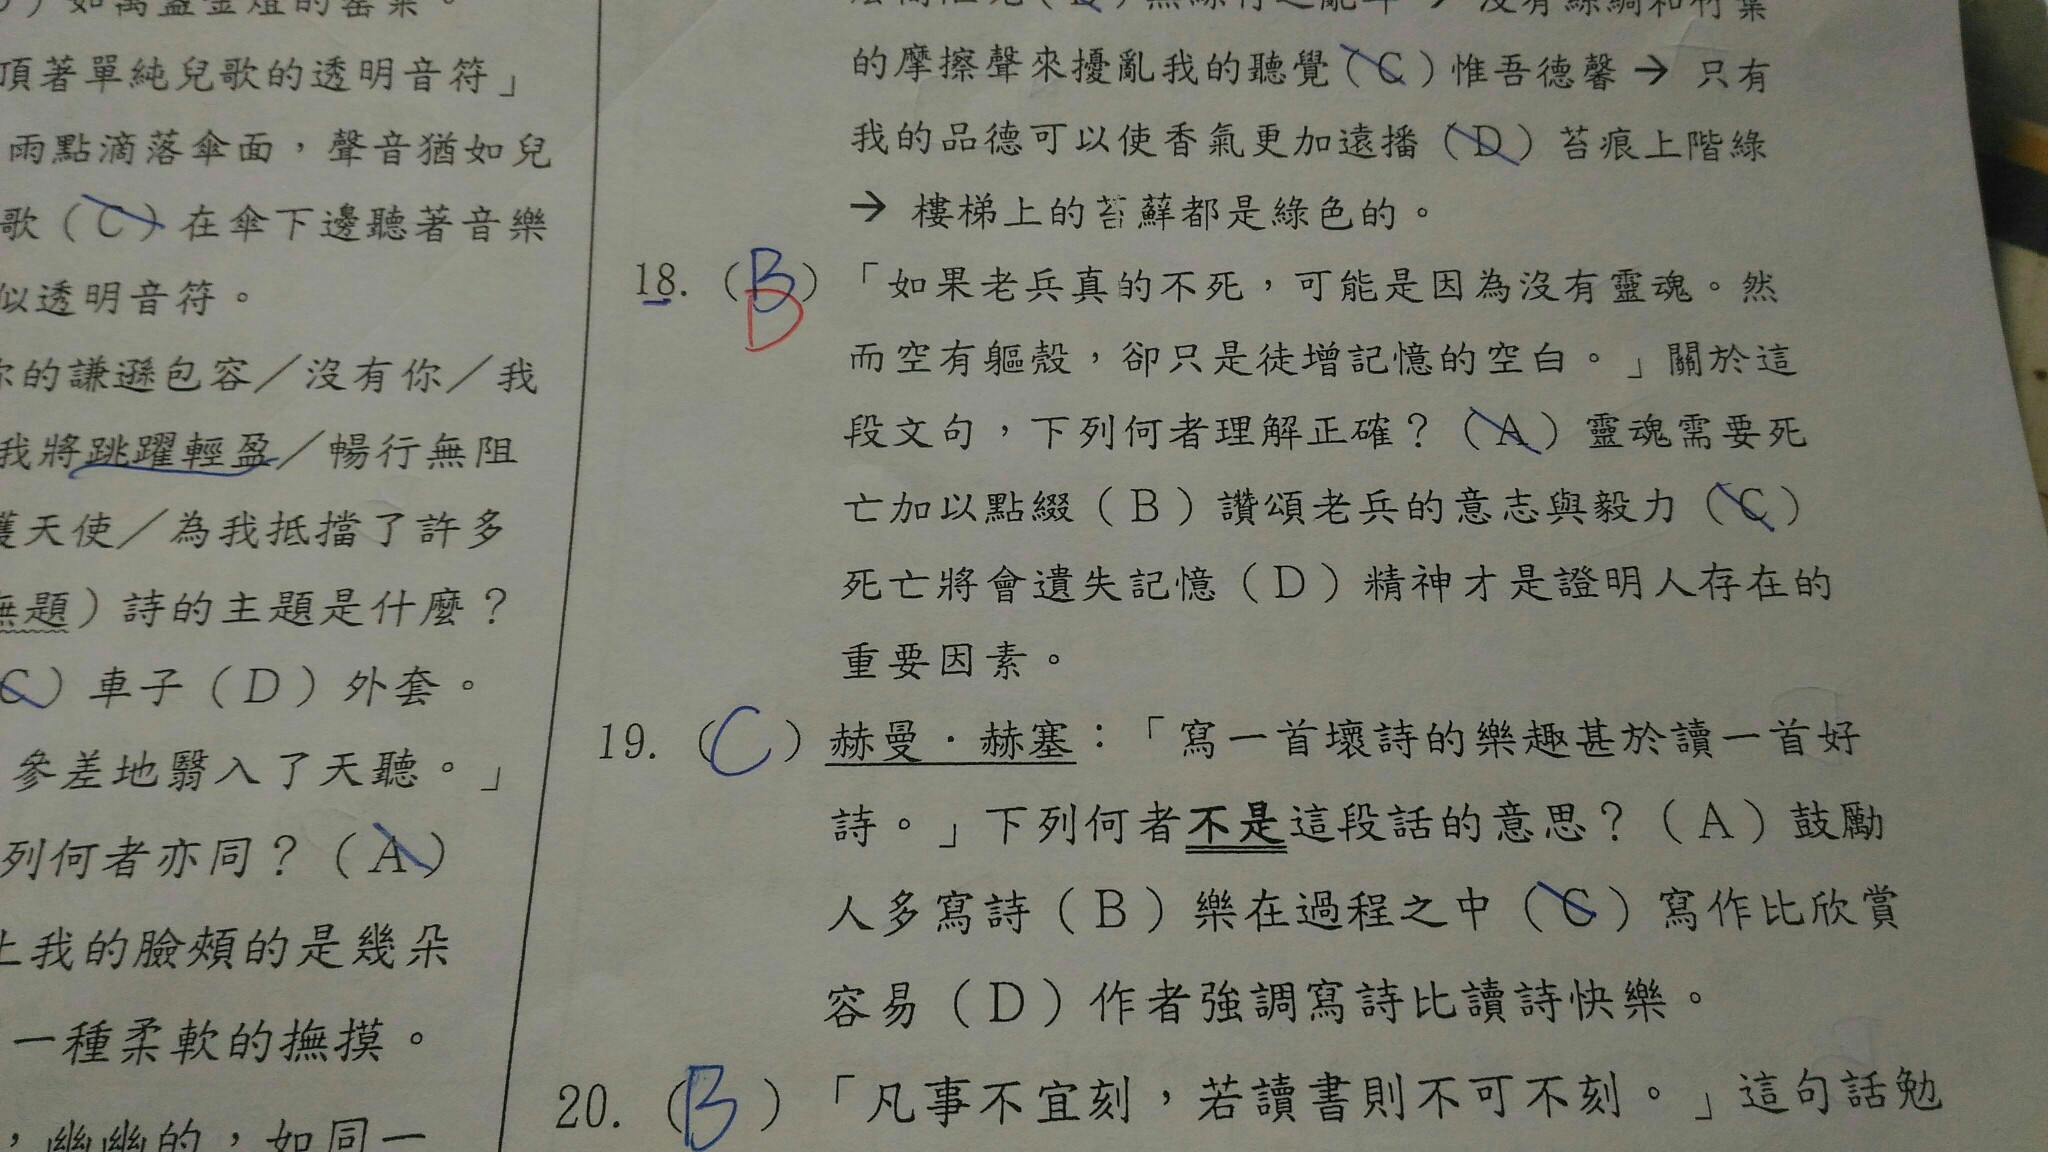 ）如萬盞金燈的
頂著單純兒歌的透明音符」
雨點滴落傘面，聲音猶如兒
歌（C）在傘下邊聽著音樂
似透明音符。
你的謙遜包容／沒有你／我
我將跳躍輕盈／暢行無阻
護天使／為我抵擋了許多
無題）詩的主題是什麼？
C）車子（D）外套。
參差地翳入了天聽。」
列何者亦同？（A）
上我的臉頰的是幾朵
一種柔軟的撫摸。
，幽幽的，如同一
沒有絲綢和竹葉
的摩擦聲來擾亂我的聽覺（C）惟吾德馨→ 只有
我的品德可以使香氣更加遠播（D）苔痕上階綠
→ 樓梯上的苔蘚都是綠色的。
18.（B）「如果老兵真的不死，可能是因為沒有靈魂。然
D
而空有軀殼，卻只是徒增記憶的空白。」關於這
段文句，下列何者理解正確？（A）靈魂需要死
亡加以點綴（B）讚頌老兵的意志與毅力（C）
死亡將會遺失記憶（D）精神才是證明人存在的
重要因素。
19.（C）赫曼．赫塞：「寫一首壞詩的樂趣甚於讀一首好
詩。」下列何者不是這段話的意思？（A）鼓勵
人多寫詩（B）樂在過程之中（C）寫作比欣賞
容易（D）作者強調寫詩比讀詩快樂。
20.（B）「凡事不宜刻，若讀書則不可不刻。」這句話勉